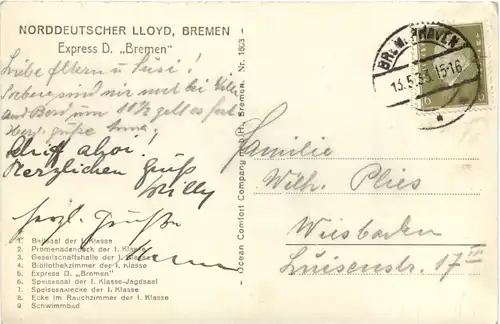 NORDDEUTSCHER LLOYD, BREMEN
Express D. „Bremen"
Liebe Eltern u Susi!
Soeben sind wir mit bei Willy
And Bord um 11½ geht es fort
Herzl. Grüße
Schiff ahoi!
Herzlichen Gruß
Willy
herzl. Grüße
1. Ballsaal der I. Klasse
2. Promenadendeck der I. Klasse
3. Gesellschaftshalle der I. Klasse
4. Bibliothekzimmer der I. Klasse
5. Express D. „Bremen"
6. Speisesaal der I. Klasse-Jagdsaal
7. Speisesaalecke der I. Klasse
8. Ecke im Rauchzimmer der I. Klasse
9. Schwimmbad
Ocean Comfort Company m.b.H., Bremen. Nr. 1603
13.5.33. 15-16
6
Familie
Wilh. Plies
Wiesbaden
Luisenstr. 17 III